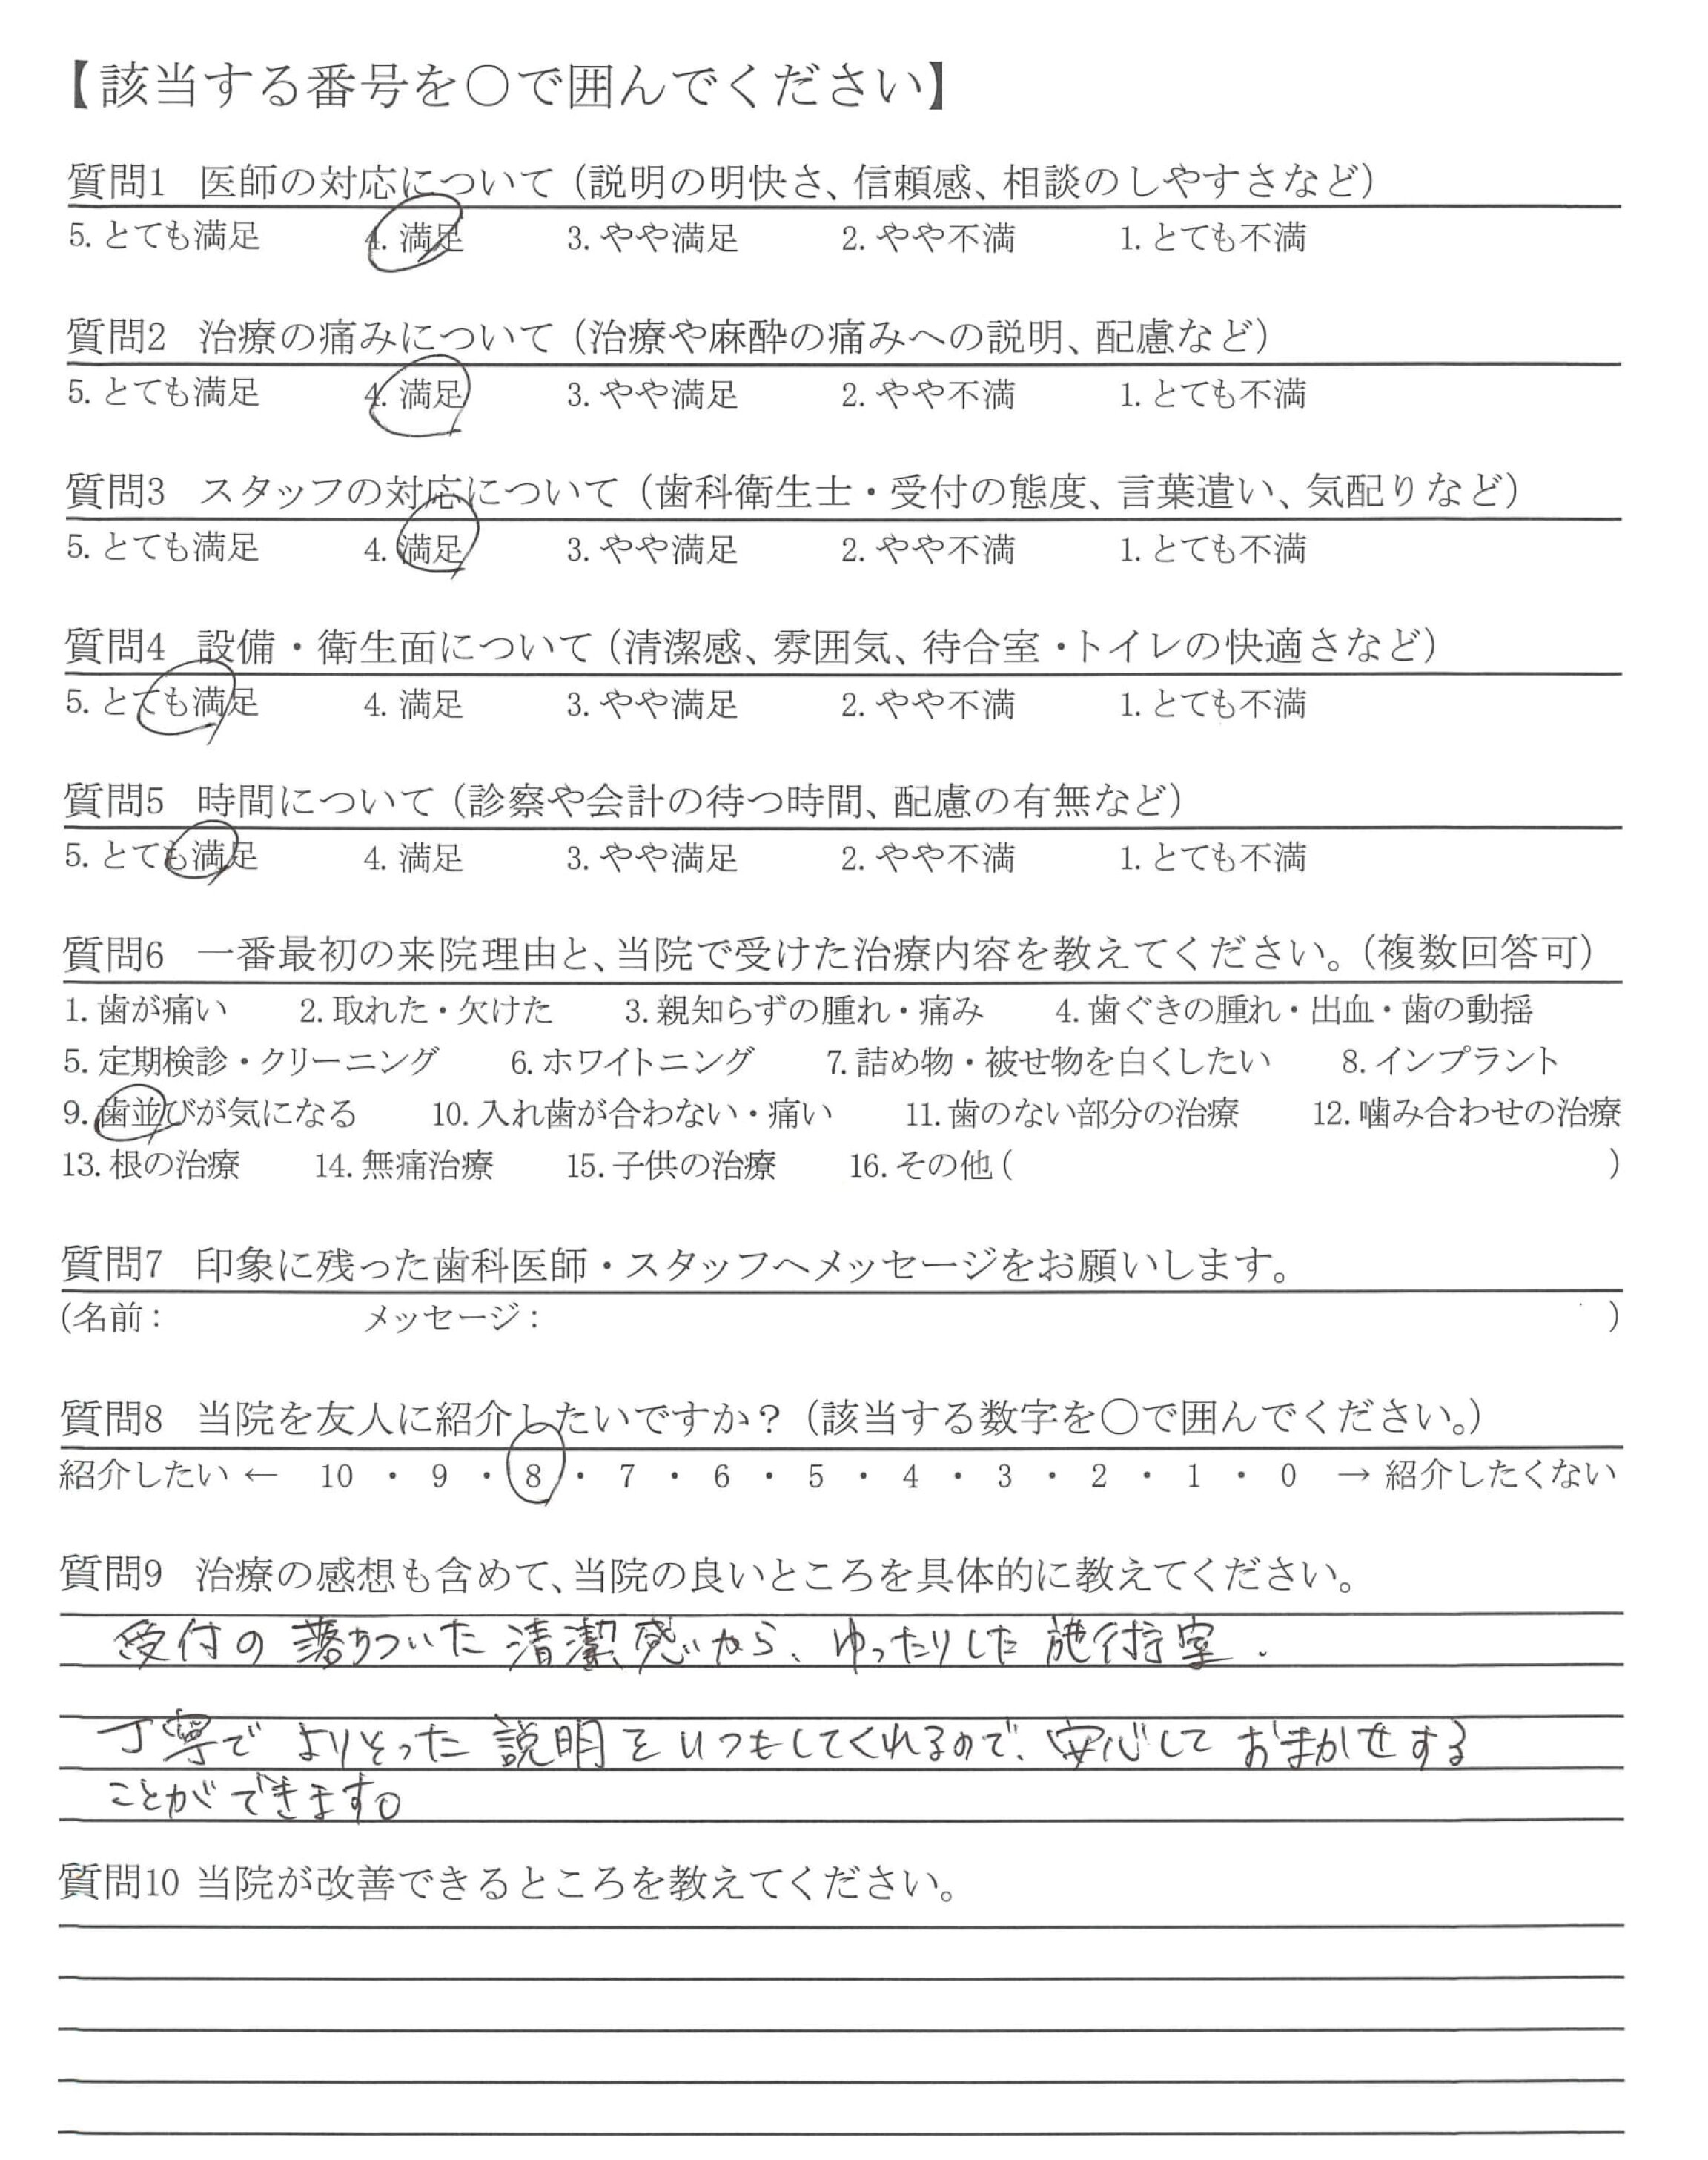 【該当する番号を〇で囲んでください】
質問1 医師の対応について（説明の明快さ、信頼感、相談のしやすさなど）
5. とても満足 4. 満足 3. やや満足 2. やや不満 1. とても不満
質問2 治療の痛みについて（治療や麻酔の痛みへの説明、配慮など）
5. とても満足 4. 満足 3. やや満足 2. やや不満 1. とても不満
質問3 スタッフの対応について（歯科衛生士・受付の態度、言葉遣い、気配りなど）
5. とても満足 4. 満足 3. やや満足 2. やや不満 1. とても不満
質問4 設備・衛生面について（清潔感、雰囲気、待合室・トイレの快適さなど）
5. とても満足 4. 満足 3. やや満足 2. やや不満 1. とても不満
質問5 時間について（診察や会計の待つ時間、配慮の有無など）
5. とても満足 4. 満足 3. やや満足 2. やや不満 1. とても不満
質問6 一番最初の来院理由と、当院で受けた治療内容を教えてください。（複数回答可）
1. 歯が痛い 2. 取れた・欠けた 3. 親知らずの腫れ・痛み 4. 歯ぐきの腫れ・出血・歯の動揺
5. 定期検診・クリーニング 6. ホワイトニング 7. 詰め物・被せ物を白くしたい 8. インプラント
9. 歯並びが気になる 10. 入れ歯が合わない・痛い 11. 歯のない部分の治療 12. 噛み合わせの治療
13. 根の治療 14. 無痛治療 15. 子供の治療 16. その他（ ）
質問7 印象に残った歯科医師・スタッフへメッセージをお願いします。
（名前： メッセージ： ）
質問8 当院を友人に紹介したいですか？（該当する数字を〇で囲んでください。）
紹介したい ← 10 ・ 9 ・ 8 ・ 7 ・ 6 ・ 5 ・ 4 ・ 3 ・ 2 ・ 1 ・ 0 → 紹介したくない
質問9 治療の感想も含めて、当院の良いところを具体的に教えてください。
受付の落ちついた清潔感から、ゆったりした施術室．
丁寧でよりそった説明をいつもしてくれるので、安心しておまかせする
ことができます。
質問10 当院が改善できるところを教えてください。